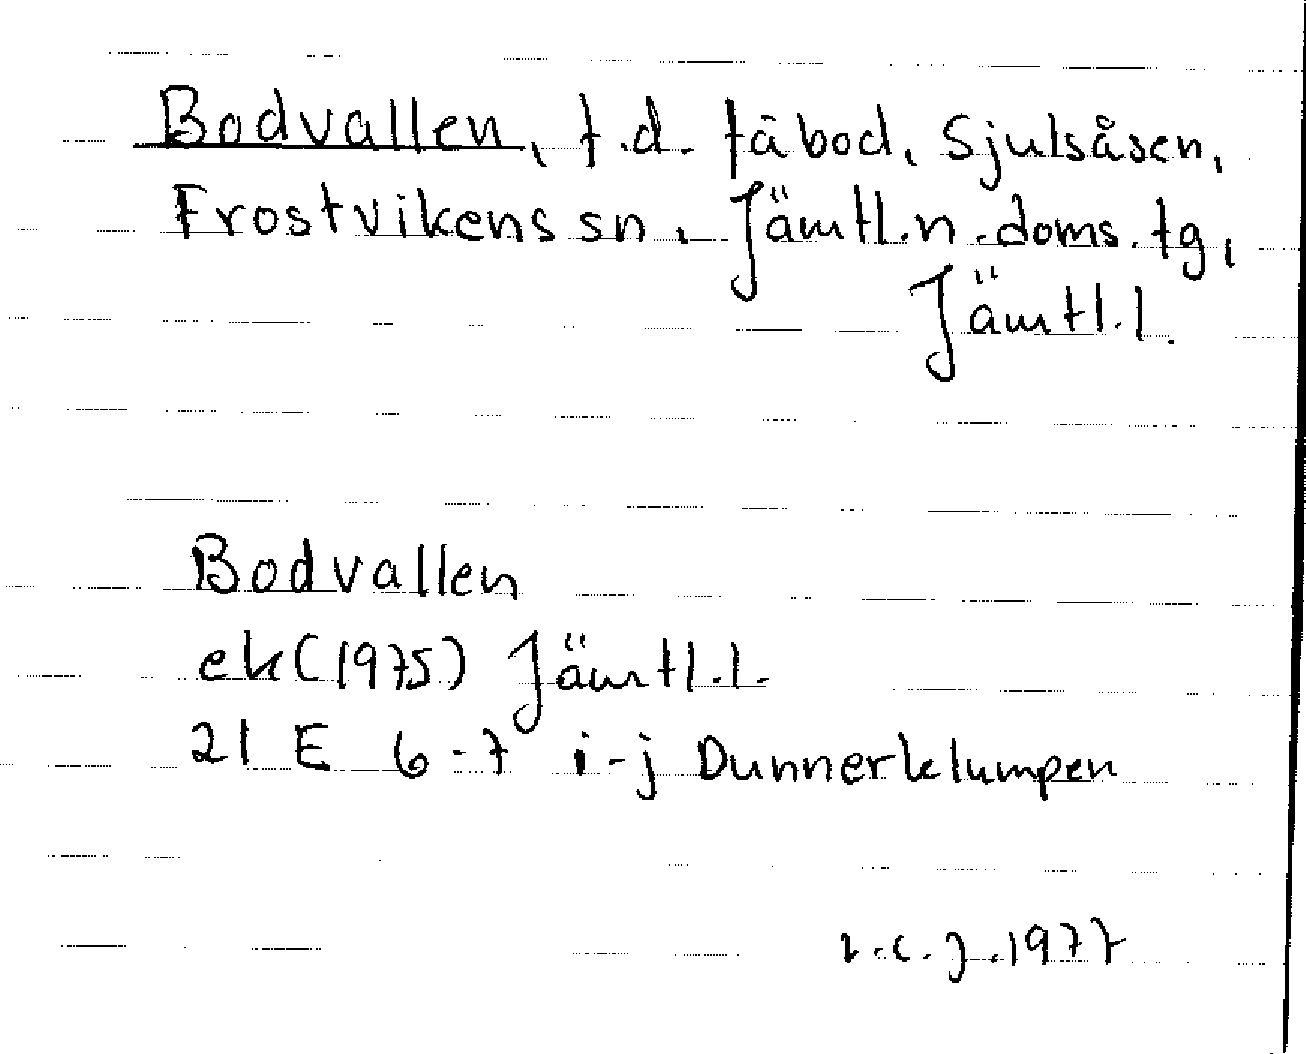 Bodvallen, f.d. fäbod, Sjulsåsen,
Frostvikens sn, Jämtl.n.doms.tg,
Jämtl.l.
Bodvallen
ek (1975) Jämtl.l.
21 E 6-7 i-j Dunnerklumpen
1977